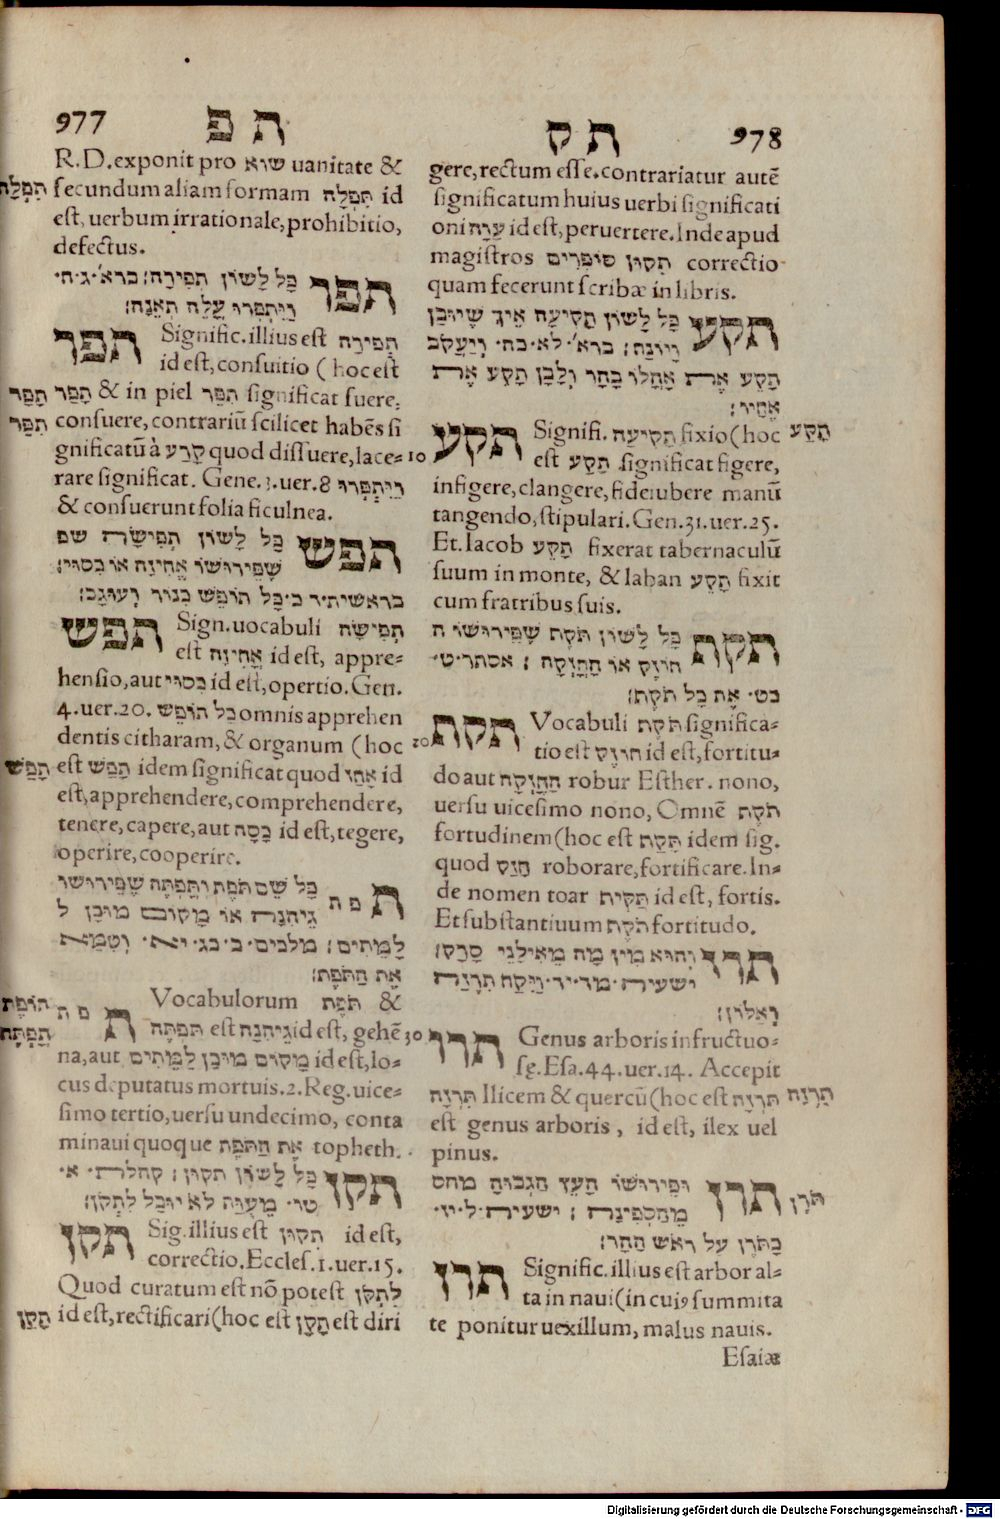 977 ת פ
R.D. exponit pro שוא uanitate &
תִּפְלָה secundum aliam formam תִּפְלָה id
est, uerbum irrationale, prohibitio,
defectus.
תפר כָּל לָשׁוֹן תְפִירָה׃ ברא׳·ג·ח·
וַיִּתְפְּרוּ עֲלֵה תְאֵנָה׃
תפר Signific. illius est תְּפִירָה
id est, consuitio (hoc est
תָּפַר תָּפַר & in piel תִּפֵּר significat suere,
תִּפֵּר consuere, contrariũ scilicet habẽs si
gnificatũ à קָרַע quod dissuere, lace=
rare significat. Gene.3.uer.8 וַיִּתְפְּרוּ
& consuerunt folia ficulnea.
תפש כָּל לָשׁוֹן תְּפִישָׂה שם
שֶׁפֵּירוּשׁוֹ אֲחִיזָה אוֹ כִּסּוּי׃
בראשית·ד כ·כָּל תּוֹפֵשׂ כִנּוֹר וְעוּגָב׃
תפש Sign. uocabuli תְּפִישָׂה
est אֲחִיזָה id est, appre=
hensio, aut כִּסּוּי id est, opertio. Gen.
4.uer.20. כָּל תּוֹפֵשׂ omnis apprehen
dentis citharam, & organum (hoc
תָּפַשׂ est תָּפַשׂ idem significat quod אָחַז id
est, apprehendere, comprehendere,
tenere, capere, aut כָּסָה id est, tegere,
operire, cooperire.
ת פ ת כָּל שֵׁם תֹּפֶת וְתָפְתֶּה שֶׁפֵּירוּשׁוֹ
גֵיהִנָּה אוֹ מָקוֹם מוּכָן ל
לַמֵּתִים׃ מלכים·ב·כג·יא· וְטִמֵּא
אֶת הַתֹּפֶת׃
תּוֹפֶת ת פ ת Vocabulorum תֹּפֶת &
תָּפְתֶּה תָּפְתֶּה est גֵיהִנָּה id est, gehẽ
na, aut מָקוֹם מוּכָן לַמֵּתִים id est, lo=
cus deputatus mortuis. 2. Reg. uice=
simo tertio, uersu undecimo, conta
minaui quoque אֶת הַתֹּפֶת topheth.
תקן כָּל לָשׁוֹן תִּקּוּן׃ קהלת· א·
טו· מְעֻוָּת לֹא יוּכַל לִתְקֹן׃
תקן Sig. illius est תִּקּוּן id est,
correctio. Eccles.1.uer.15.
Quod curatum est nõ potest לִתְקֹן
תָּקַן id est, rectificari (hoc est תָּקַן est diri
ת ק 978
gere, rectum esse. contrariatur autẽ
significatum huius uerbi significati
oni עִוָּה id est, peruertere. Inde apud
magistros תִּקּוּן סוֹפְרִים correctio
quam fecerunt scribæ in libris.
תקע כָּל לָשׁוֹן תְּקִיעָה אֵיךְ שֶׁיוּכַן
וְיוּנַח׃ ברא׳·לא·כה· וְיַעֲקֹב
תָּקַע אֶת אָהֳלוֹ בָּהָר וְלָבָן תָּקַע אֶת
אֶחָיו׃
תקע Signifi. תְּקִיעָה fixio (hoc תָּקַע
10 est תָּקַע significat figere,
infigere, clangere, fideiubere manũ
tangendo, stipulari. Gen.31.uer.25.
Et. Iacob תָּקַע fixerat tabernaculũ
suum in monte, & laban תָּקַע fixit
cum fratribus suis.
תקת כָּל לָשׁוֹן תֹּקֶת שֶׁפֵּירוּשׁוֹ ח
חוֹזֶק אוֹ הַחֲזָקָה׃ אסתר·ט·
כט· אֶת כָּל תֹּקֶת׃
תקת Vocabuli תֹּקֶת significa=
20 tio est חוֹזֶק id est, fortitu=
do aut הַחֲזָקָה robur Esther. nono,
uersu uicesimo nono, Omnẽ תֹּקֶת
fortudinem (hoc est תָּקַת idem sig.
quod חָזַק roborare, fortificare. In=
de nomen toar תַּקִּית id est, fortis.
Et substantiuum תֹּקֶת fortitudo.
תרז וְהוּא מִין מָה מֵאִילָנֵי סְרָק׃
ישעיה·מד·יד·וַיִּקַּח תִּרְזָה
וְאַלּוֹן׃
30 תרז Genus arboris infructuo=
sę. Esa.44.uer.14. Accepit
תִּרְזָה Ilicem & quercũ (hoc est תִּרְזָה תִּרְזָה
est genus arboris, id est, ilex uel
pinus.
תרן וּפֵירוּשׁוֹ הָעֵץ הַגְּבוֹהַּ מהס תֹּרֶן
מֵהַסְּפִינָה׃ ישעיה·ל·יז·
כַּתֹּרֶן עַל רֹאשׁ הָהָר׃
תרן Signific. illius est arbor al=
ta in naui (in cuiꝰ summita
te ponitur uexillum, malus nauis.
Esaiæ
Digitalisierung gefördert durch die Deutsche Forschungsgemeinschaft - DFG